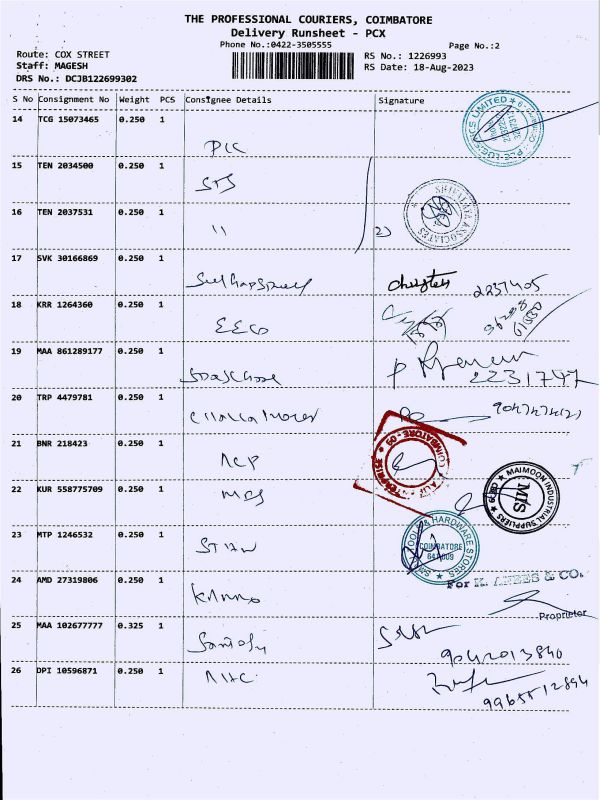 THE PROFESSIONAL COURIERS, COIMBATORE
Delivery Runsheet - PCX
Phone No.:0422-3505555
Page No.:2
Route: COX STREET
RS No.: 1226993
Staff: MAGESH
RS Date: 18-Aug-2023
DRS No.: DCJB122699302
S No Consignment No Weight PCS Consignee Details Signature
14 TCG 15073465 0.250 1
PLC
15 TEN 2034500 0.250 1
STS
16 TEN 2037531 0.250 1
11
2)
SHRIMATA ASSOCIATES
17 SVK 30166869 0.250 1
2237405
18 KRR 1264360 0.250 1
EECO
19 MAA 861289177 0.250 1
2231747
20 TRP 4479781 0.250 1
21 BNR 218423 0.250 1
ACP
COIMBATORE - 09
22 KUR 558775709 0.250 1
MAIMOON INDUSTRIAL SUPPLIERS
MIS
23 MTP 1246532 0.250 1
TOOLS & HARDWARE STORES
COIMBATORE
641 009
24 AMD 27319806 0.250 1
For K. ANEES & CO.
Proprietor
25 MAA 102677777 0.325 1
9042013840
26 DPI 10596871 0.250 1
9965512894